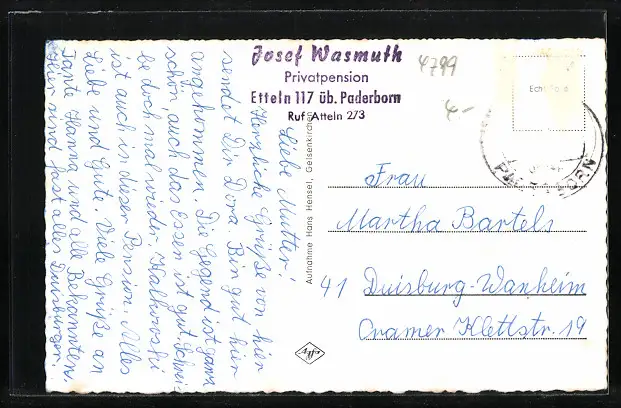 Josef Wasmuth
Privatpension
Etteln 117 üb. Paderborn
Ruf Atteln 273
4799
4,-
Liebe Mutter!
Herzliche Grüße von hier
sendet Dir Dora. Bin gut hier
angekommen. Die Gegend ist ganz
schön, auch das Essen ist gut. Schrei-
be doch mal wieder.
ist auch in dieser Pension. Alles
Liebe und Gute. Viele Grüße an
Tante Hanna und alle Bekannten.
Hier sind fast alles Duisburger.
Aufnahme Hans Hensel, Gelsenkirchen
Agfa
Frau
Martha Bartels
41 Duisburg-Wanheim
Cramer Klettstr. 19